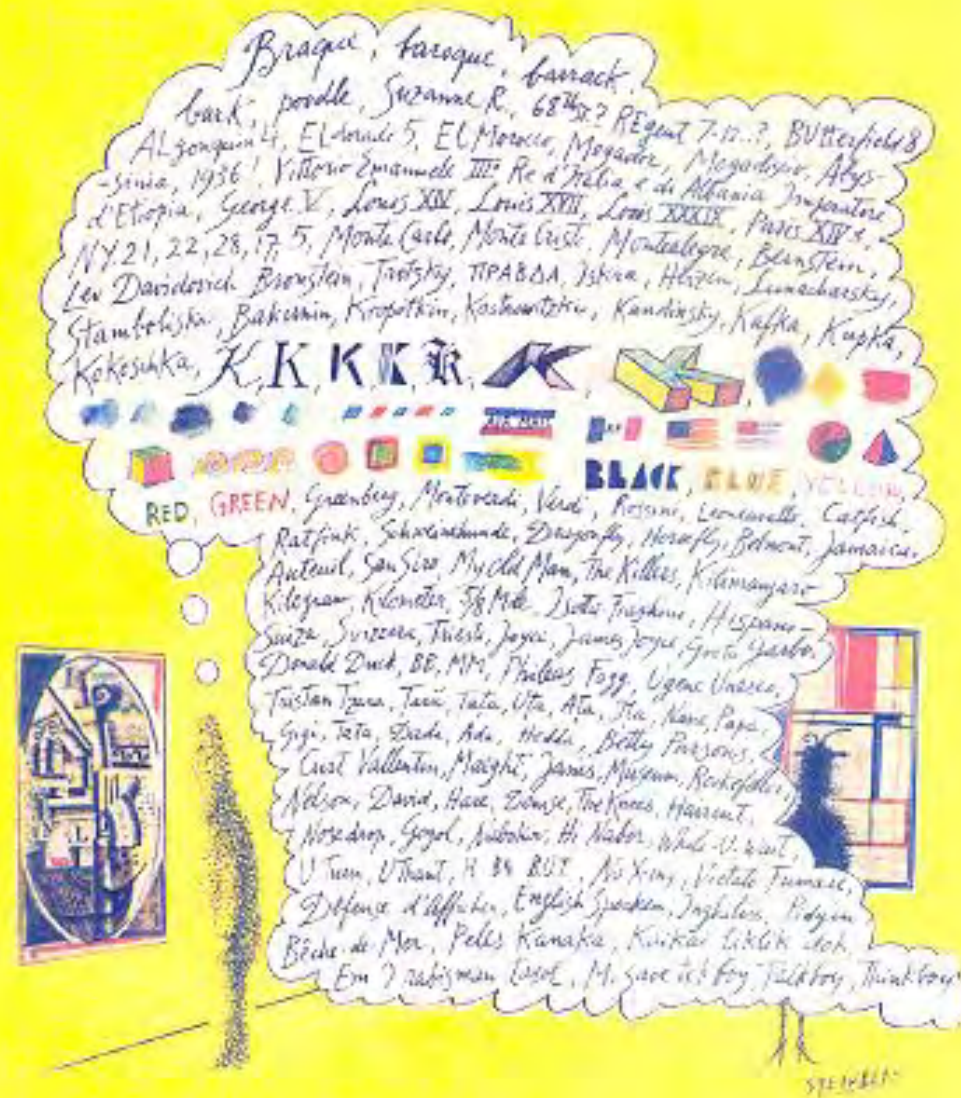 Braque, baroque, barrack,
bark, poodle, Suzanne R., 68th St.? REgent 7-12..?, BUtterfield 8
ALgonquin 4, ELdorado 5, EL Morocco, Mogador, Mogadiscio, Abys-
-sinia, 1936! Vittorio Emanuele III° Re d'Italia e di Albania Imperatore
d'Etiopia, George V, Louis XIV, Louis XVII, Louis XXXIX, Paris XIVe,
N.Y. 21, 22, 28, 17, 5, Monte Carlo, Monte Cristo, Montealegre, Bernstein,
Lev Davidovich Bronstein, Trotzky, ПРАВДА, Iskra, Herzen, Lunacharsky,
Stamboliski, Bakunin, Kropotkin, Kandinsky, Kafka, Kupka,
Kokoschka, K, K, K, K, K, K, K,
AIR MAIL
BLACK, BLUE, YELLOW,
RED, GREEN, Greenberg, Monteverdi, Verdi, Rossini, Leoncavallo, Catfish,
Ratfink, Schweinehunde, Dragonfly, Horsefly, Belmont, Jamaica,
Auteuil, San Siro, My Old Man, The Killers, Kilimanjaro
Kilogram, Kilometer, 5/8 Mile, Isotta Fraschini, Hispano-
Suiza, Svizzera, Trieste, Joyce, James Joyce, Greta Garbo,
Donald Duck, BB, MM, Phileas Fogg, Ugene Unesco,
Tristan Tzara, Tata, Uta, Ata, Ita, Papa,
Gigi, Tata, Dada, Ada, Hedda, Betty Parsons,
Curt Vallentin, Maeght, Janis, Museum, Rockefeller,
Nelson, David, Hare, Denise, The Knees, Haircut,
Nosedrop, Gogol, Nabokov, Hi Nabor, While-U-Wait,
U Turn, U Thant, No X-ing, Vietato Fumare,
Défense d'Afficher, English Spoken, Inghilese, Pidgin
Bêche-de-Mer, Pelts Kanaka, Kaikai liklik
Em, Talkboy, Thinkboy
STEINBERG